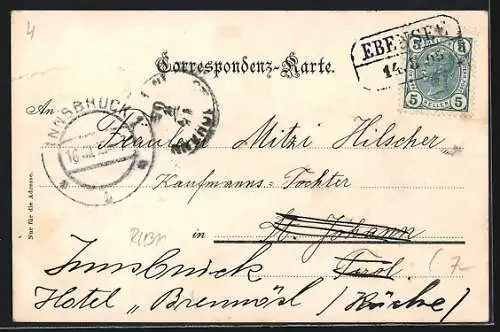 4
EBENSEE
14.8.05
5 5
HELLER
5 5
Correspondenz-Karte.
INNSBRUCK
An Fräulein Mitzi Hilscher
Kaufmanns-Tochter
in St. Johann
Innsbruck Tirol
Hotel „Brennössl (Küche)
Nur für die Adresse.